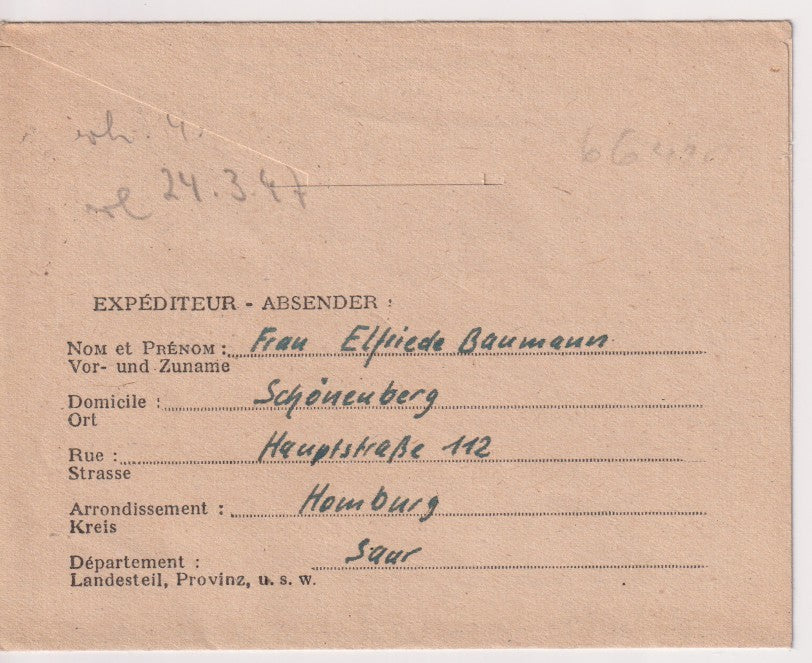 24.3.47
EXPÉDITEUR - ABSENDER :
NOM et PRÉNOM : Frau Elfriede Baumann
Vor- und Zuname
Domicile : Schönenberg
Ort
Rue : Hauptstraße 112
Strasse
Arrondissement : Homburg
Kreis
Département : Saar
Landesteil, Provinz, u. s. w.